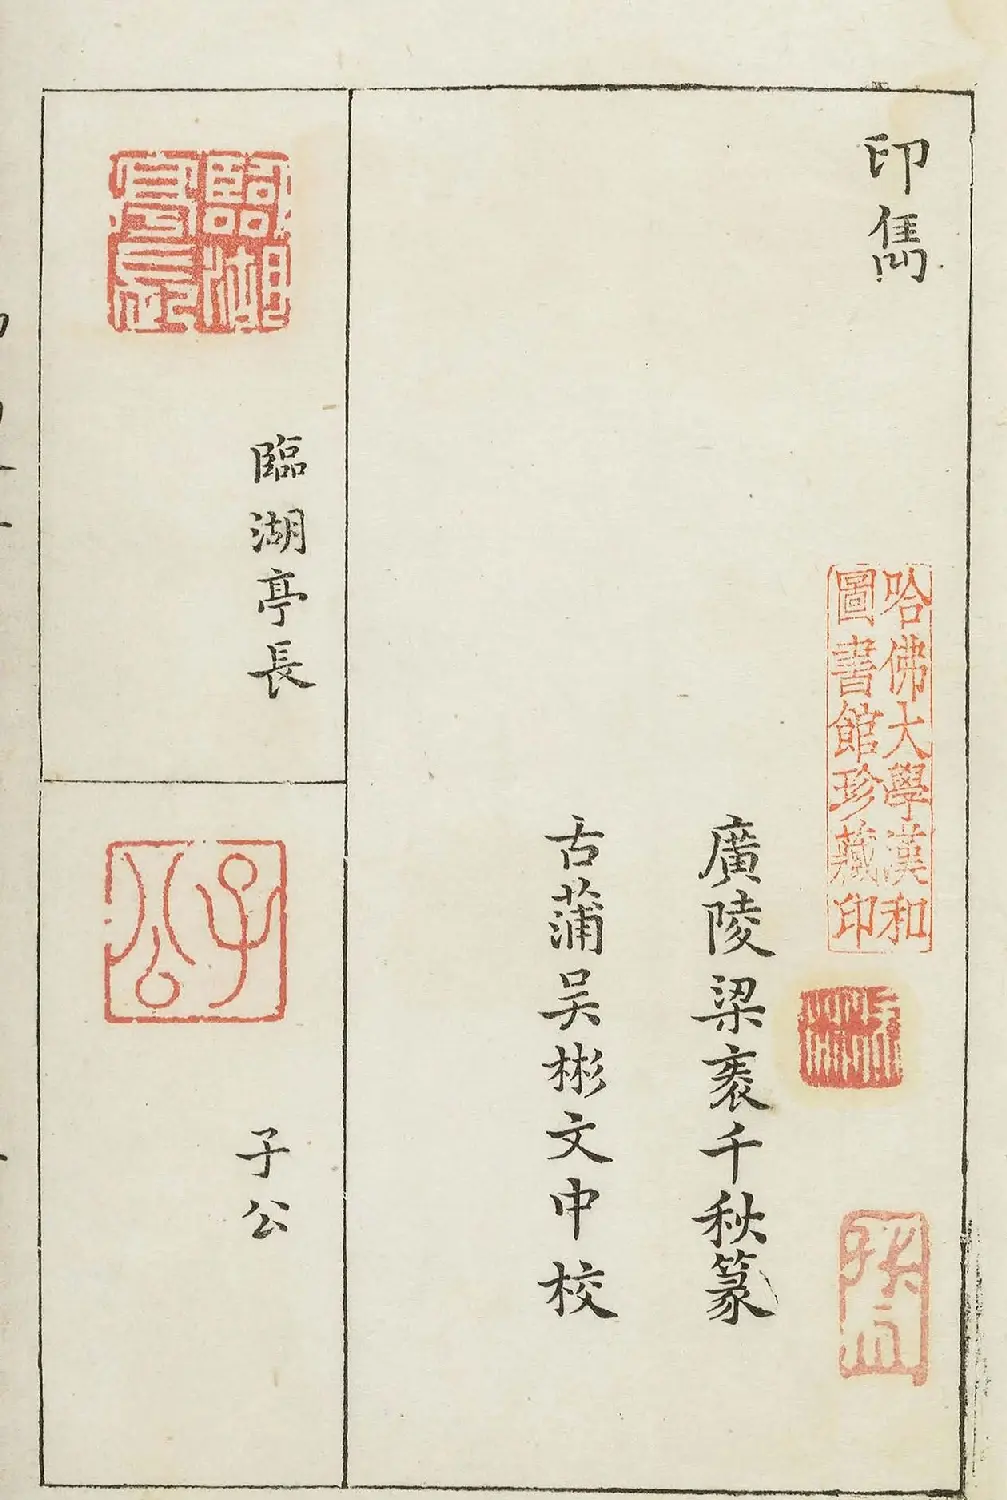 印雋
哈佛大學漢和
圖書館珍藏印
廣陵梁袠千秋篆
古蒲吴彬文中校
臨湖
亭長
臨湖亭長
子公
子公